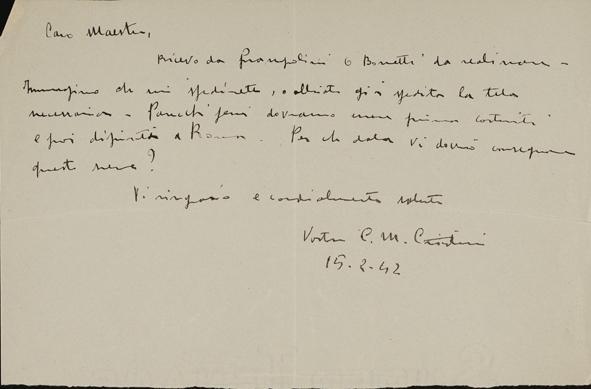 Caro Maestro,
Ricevo da Prampolini 6 Bozzetti da realizzare -
Immagino che mi spedirete, o abbiate già spedita la tela
necessaria - Parecchi pezzi dovranno essere prima costruiti
e poi dipinti a Roma. Per che data Vi dovrò consegnare
queste scene?
Vi ringrazio e cordialmente saluto
Vostro C. M. Cristini
15-2-42